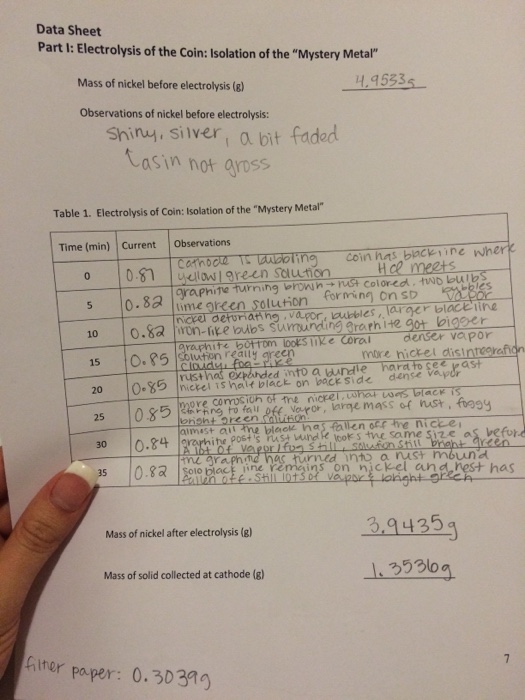 Data Sheet
Part I: Electrolysis of the Coin: Isolation of the "Mystery Metal"
Mass of nickel before electrolysis (g) 4.9533g
Observations of nickel before electrolysis:
Shiny, silver, a bit faded
as in not gross
Table 1. Electrolysis of Coin: Isolation of the "Mystery Metal"
Time (min) Current Observations
0 0.87 Cathode is bubbling coin has black line where
yellow/green solution Hcl meets
5 0.82 graphite turning brown + rust colored. two bulbs
lime green solution forming on SD bubbles vapor
10 0.82 nickel deteriating, vapor, bubbles, larger black line
iron-like bulbs surrounding graphite got bigger
15 0.85 graphite bottom looks like coral denser vapor
solution really green more nickel disintegration
cloudy, fog-like
20 0.85 rust has expanded into a bundle hard to see past
nickel is half black on backside dense vapor
25 0.85 more corrosion of the nickel, what was black is
starting to fall off vapor, large mass of rust, foggy
bright green solution
30 0.84 almost all the black has fallen off the nickel
graphite post's rust bundle looks the same size as before
A lot of vapor/fog still, solution still bright green
35 0.82 the graphite has turned into a rust mound
solo black line remains on nickel and rest has
fallen off. Still lots of vapor & bright green
Mass of nickel after electrolysis (g) 3.9435g
Mass of solid collected at cathode (g) 1.3536g
filter paper: 0.3039g
7